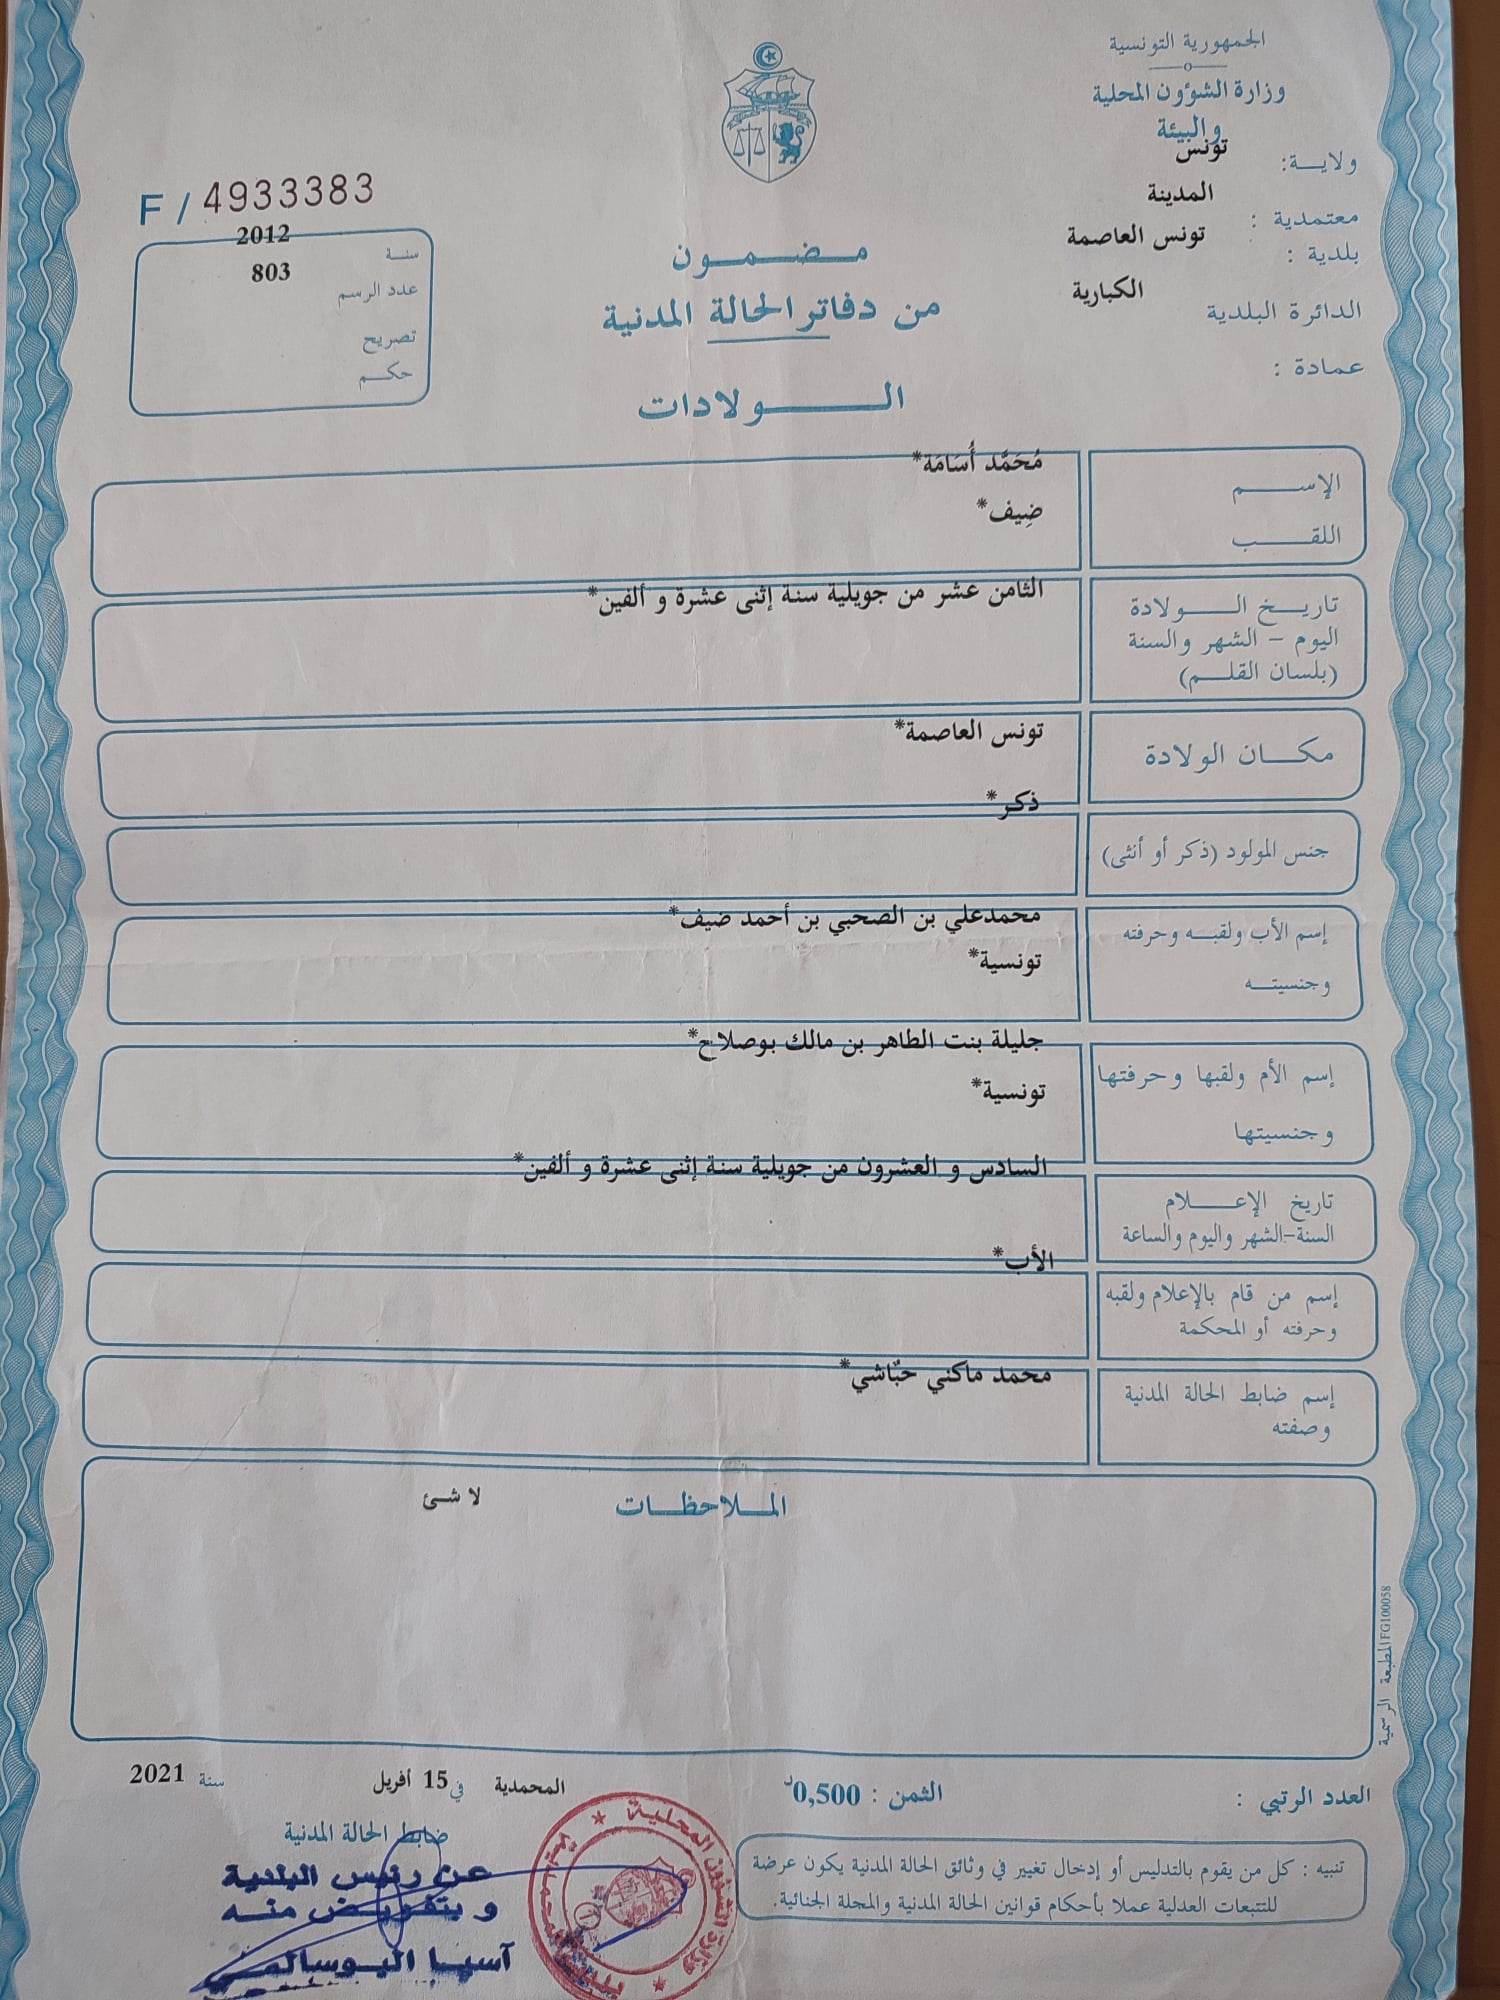 الجمهورية التونسية
وزارة الشؤون المحلية
والبيئة
ولاية: تونس
معتمدية : المدينة
بلدية : تونس العاصمة
الدائرة البلدية الكبارية
عمادة :
F / 4933383
سنة 2012
عدد الرسم 803
تصريح
حكم
مضمون
من دفاتر الحالة المدنية
الولادات
الإسم مُحَمَّد أُسَامَة*
اللقب ضِيف*
تاريخ الولادة
اليوم - الشهر والسنة
(بلسان القلم)
الثامن عشر من جويلية سنة إثنى عشرة و ألفين*
مكان الولادة تونس العاصمة*
جنس المولود (ذكر أو أنثى) ذكر*
إسم الأب ولقبه وحرفته محمدعلي بن الصحبي بن أحمد ضيف*
وجنسيته تونسية*
إسم الأم ولقبها وحرفتها جليلة بنت الطاهر بن مالك بوصلاح*
وجنسيتها تونسية*
تاريخ الإعلام
السنة-الشهر واليوم والساعة
السادس و العشرون من جويلية سنة إثنى عشرة و ألفين*
إسم من قام بالإعلام ولقبه
وحرفته أو المحكمة
الأب*
إسم ضابط الحالة المدنية
وصفته
محمد ماكني حبّاشي*
الملاحظات لا شئ
المطبعة الرسمية FG100058
العدد الرتبي :
الثمن : 0,500د
المحمدية في 15 أفريل سنة 2021
ضابط الحالة المدنية
عن رئيس البلدية
و بتفويض منه
آسيا البوسالمي
تنبيه : كل من يقوم بالتدليس أو إدخال تغيير في وثائق الحالة المدنية يكون عرضة
للتتبعات العدلية عملا بأحكام قوانين الحالة المدنية والمجلة الجنائية.
وزارة الشؤون المحلية